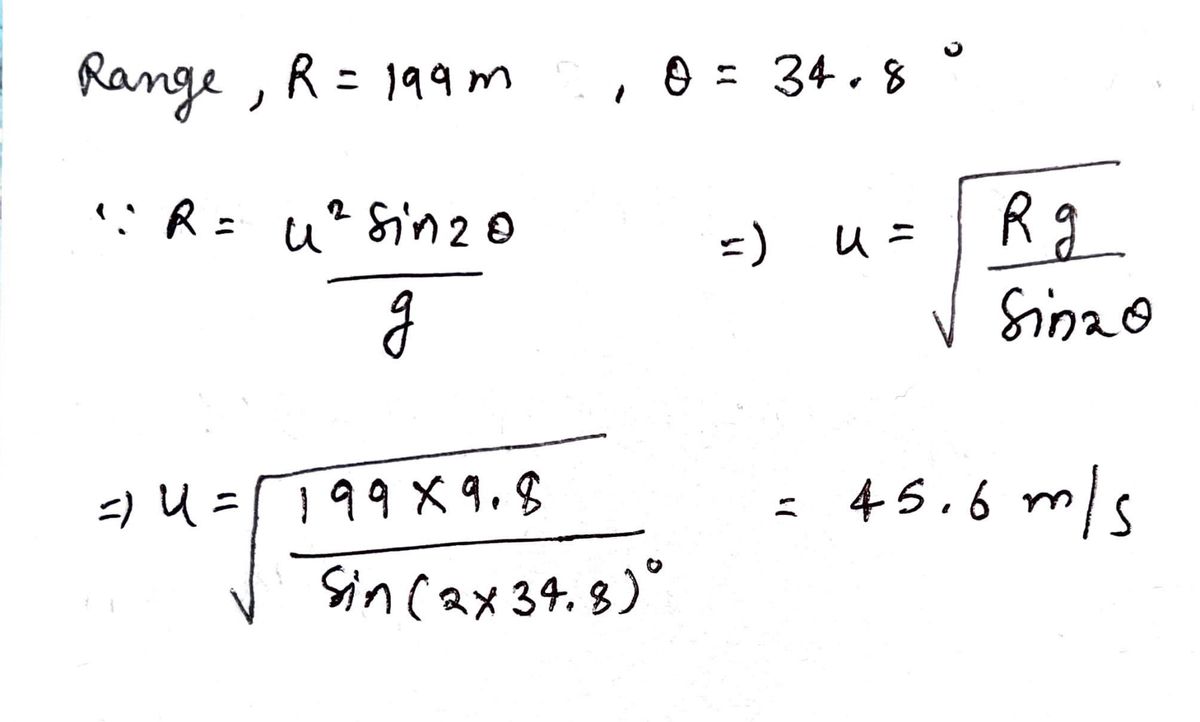 Range, R = 199 m , θ = 34.8°
∵ R = u² sin2θ / g => u = √(Rg / sin2θ)
=> u = √(199 × 9.8 / sin(2×34.8)°) = 45.6 m/s